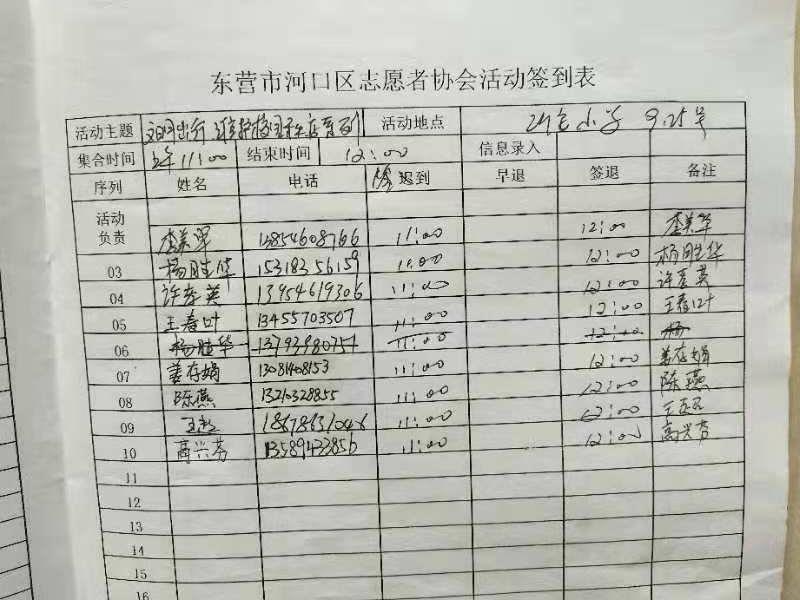 东营市河口区志愿者协会活动签到表
活动主题 文明出行 活动地点 小学 9.25号
集合时间 11:00 结束时间 12:00 信息录入
序列 姓名 电话 迟到 早退 签退 备注
活动
负责 李美华 13854608766 11:00 12:00 李美华
03 杨胜华 15318356159 11:00 12:00 杨胜华
04 许彦英 13954619306 11:00 12:00 许彦英
05 王春叶 13455703507 11:00 12:00 王春叶
06 杨胜华 13793980754 11:00 12:00 杨
07 姜存娟 13081408153 11:00 12:00 姜存娟
08 陈燕 13210328855 11:00 12:00 陈燕
09 18678631046 11:00 12:00
10 高兴芬 13589433856 11:00 12:00 高兴芬
11
12
13
14
15
16